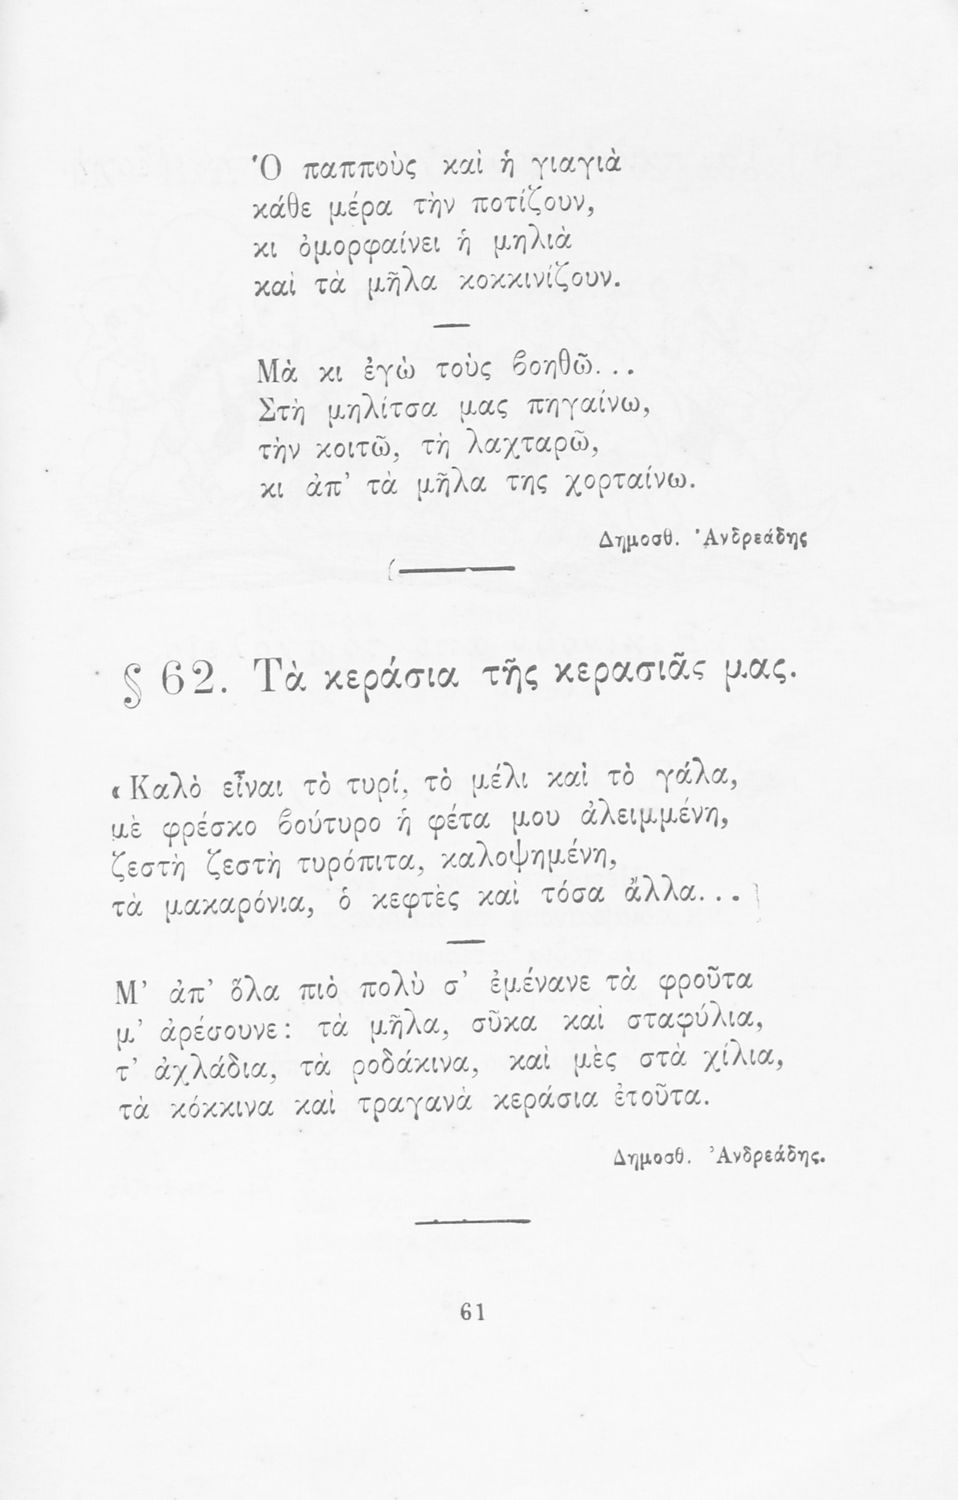 Ὁ παπποὺς καὶ ἡ γιαγιὰ
κάθε μέρα τὴν ποτίζουν,
κι ὀμορφαίνει ἡ μηλιὰ
καὶ τὰ μῆλα κοκκινίζουν.
Μὰ κι ἐγὼ τοὺς βοηθῶ...
Στὴ μηλίτσα μας πηγαίνω,
τὴν κοιτῶ, τὴ λαχταρῶ,
κι ἀπ' τὰ μῆλα της χορταίνω.
Δημοσθ. Ἀνδρεάδης
§ 62. Τὰ κεράσια τῆς κερασιᾶς μας.
«Καλὸ εἶναι τὸ τυρί, τὸ μέλι καὶ τὸ γάλα,
μὲ φρέσκο βούτυρο ἡ φέτα μου ἀλειμμένη,
ζεστὴ ζεστὴ τυρόπιτα, καλοψημένη,
τὰ μακαρόνια, ὁ κεφτὲς καὶ τόσα ἄλλα...
Μ' ἀπ' ὅλα πιὸ πολὺ σ' ἐμένανε τὰ φροῦτα
μ' ἀρέσουνε: τὰ μῆλα, σῦκα καὶ σταφύλια,
τ' ἀχλάδια, τὰ ροδάκινα, καὶ μὲς στὰ χίλια,
τὰ κόκκινα καὶ τραγανὰ κεράσια ἐτοῦτα.
Δημοσθ. Ἀνδρεάδης.
61